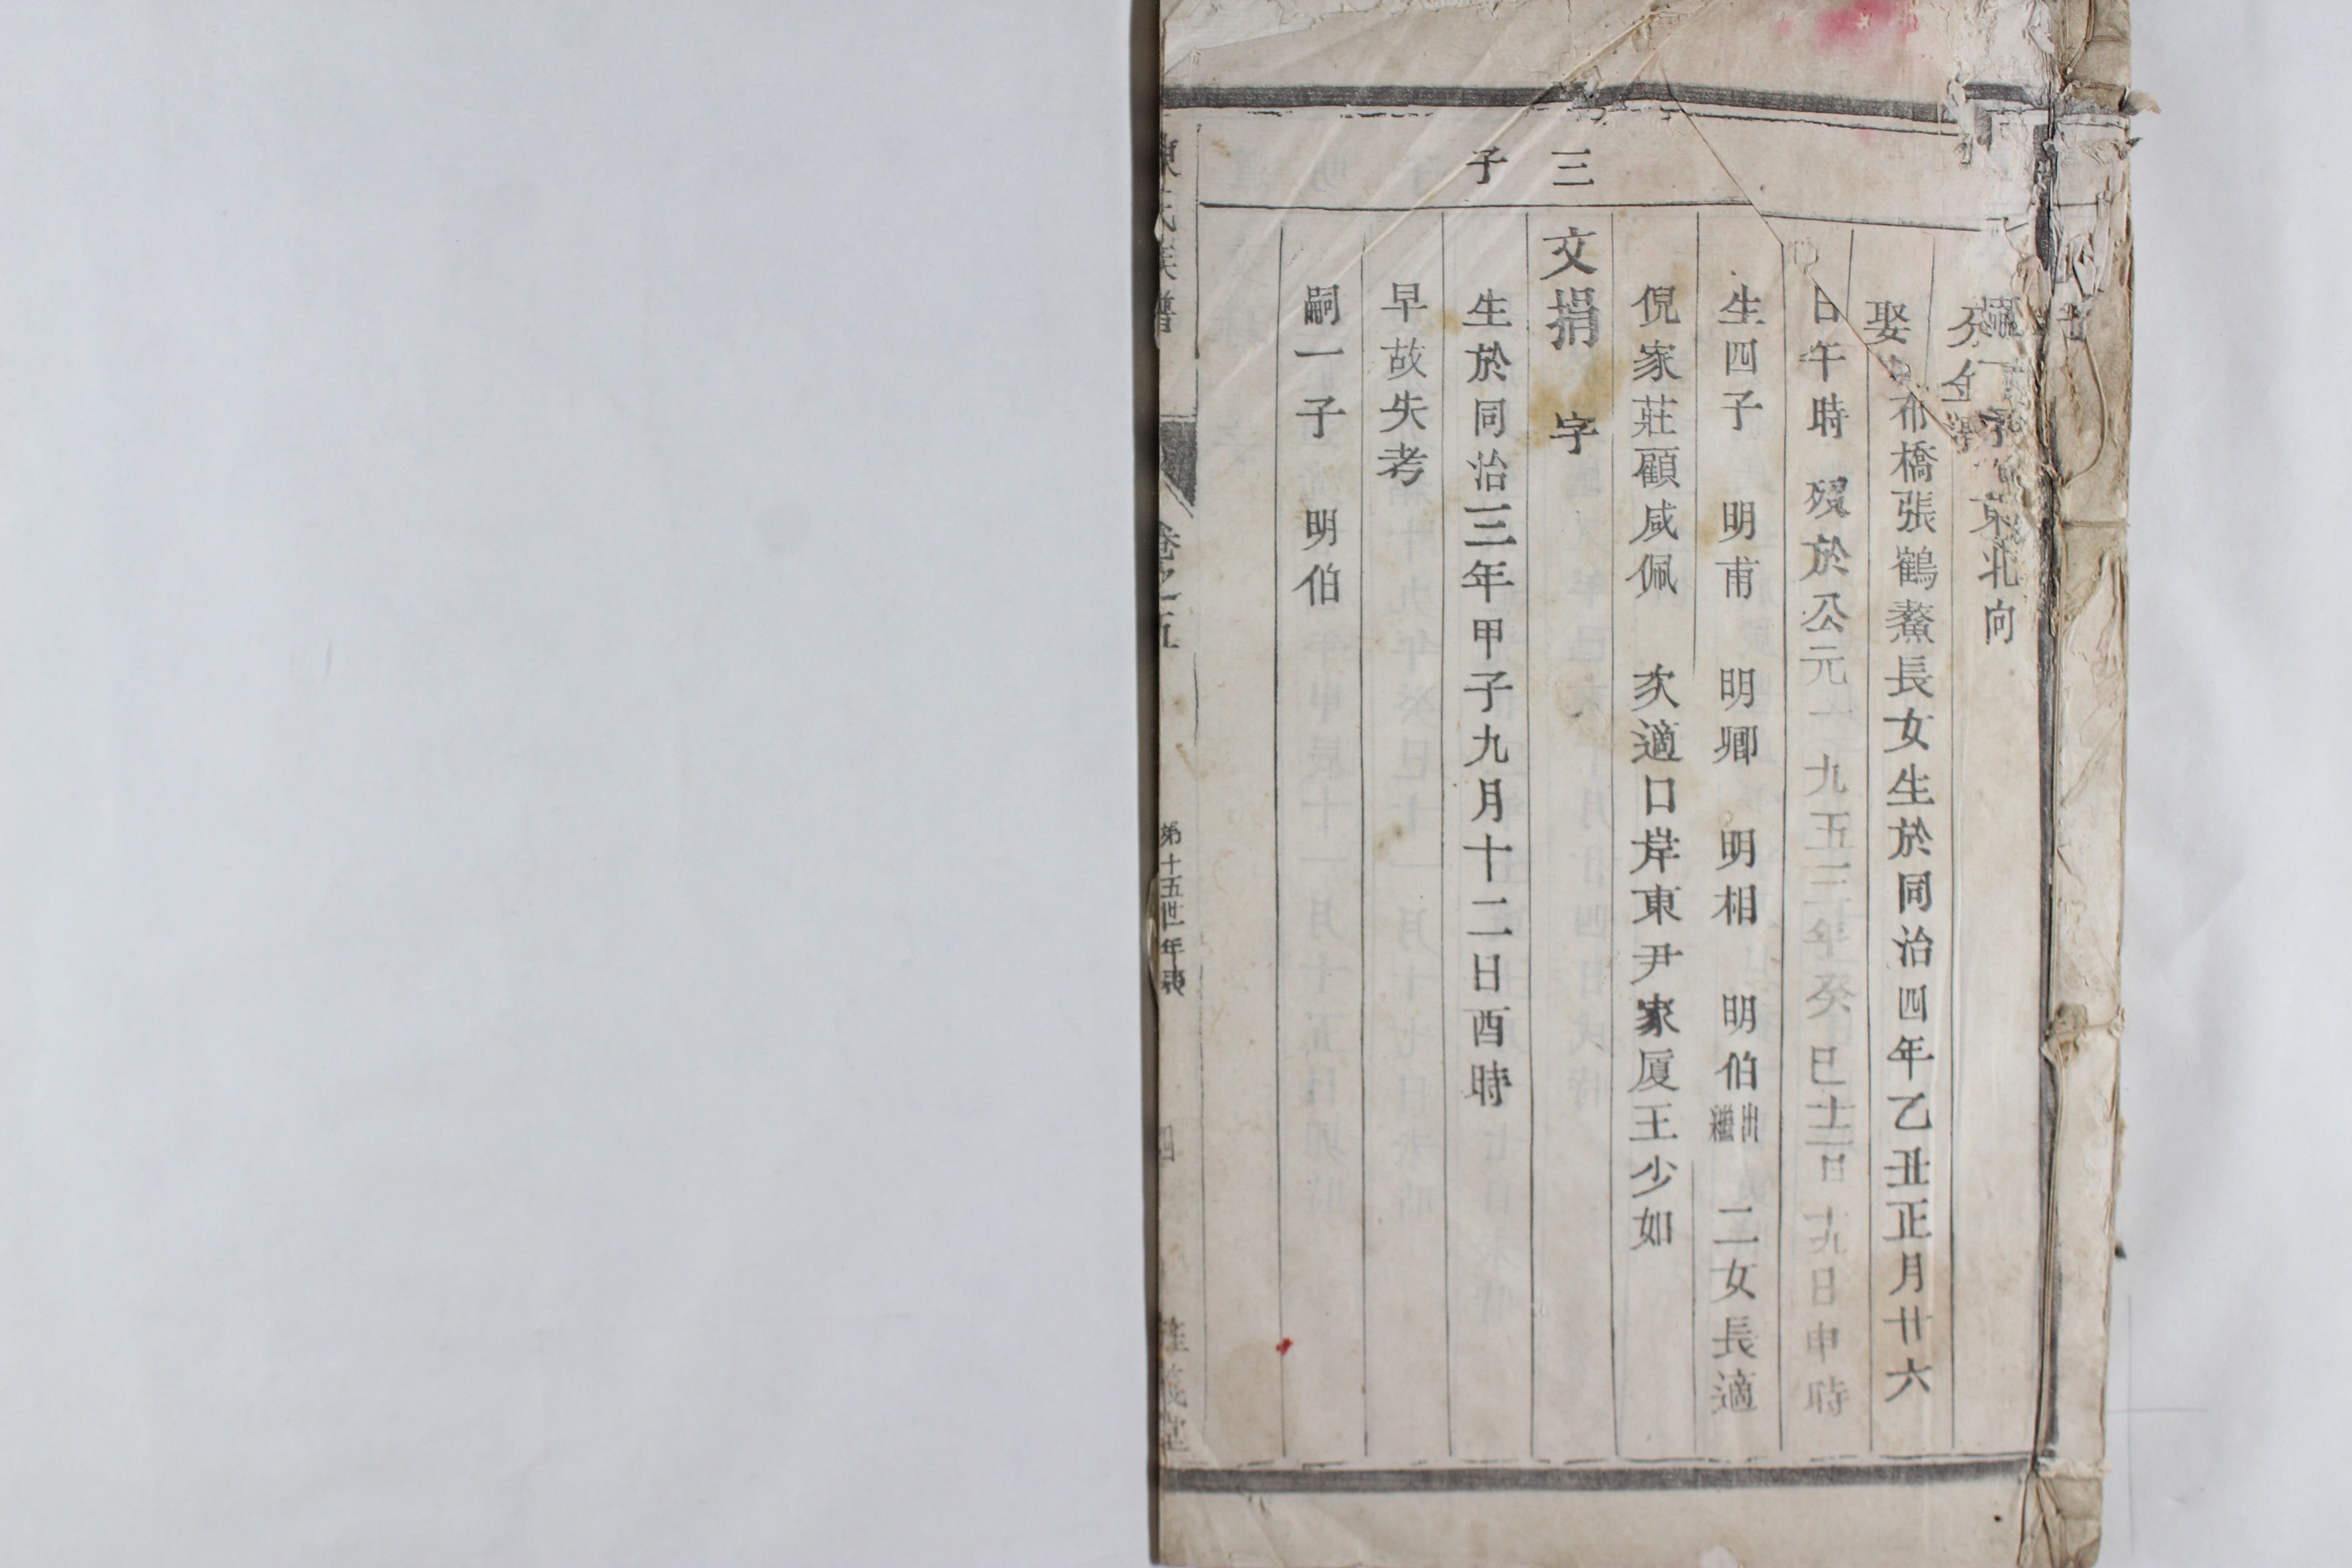 北向
娶
布橋張鶴鰲長女生於同治四年乙丑正月廿六
日午時 歿於公元一九五三年癸巳十二月十六日申時
生四子 明甫 明卿 明相 明伯出繼 二女長適
倪家莊顧咸佩 次適口岸東尹家厦王少如
三子
文捐 字
生於同治三年甲子九月十二日酉時
早故失考
嗣一子 明伯
陳氏族譜
卷之五
第十五世年表
四